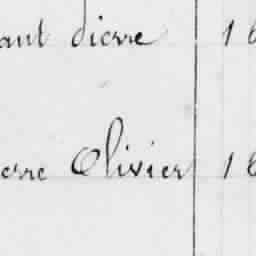 ant dierre 1
erre Olivier 18